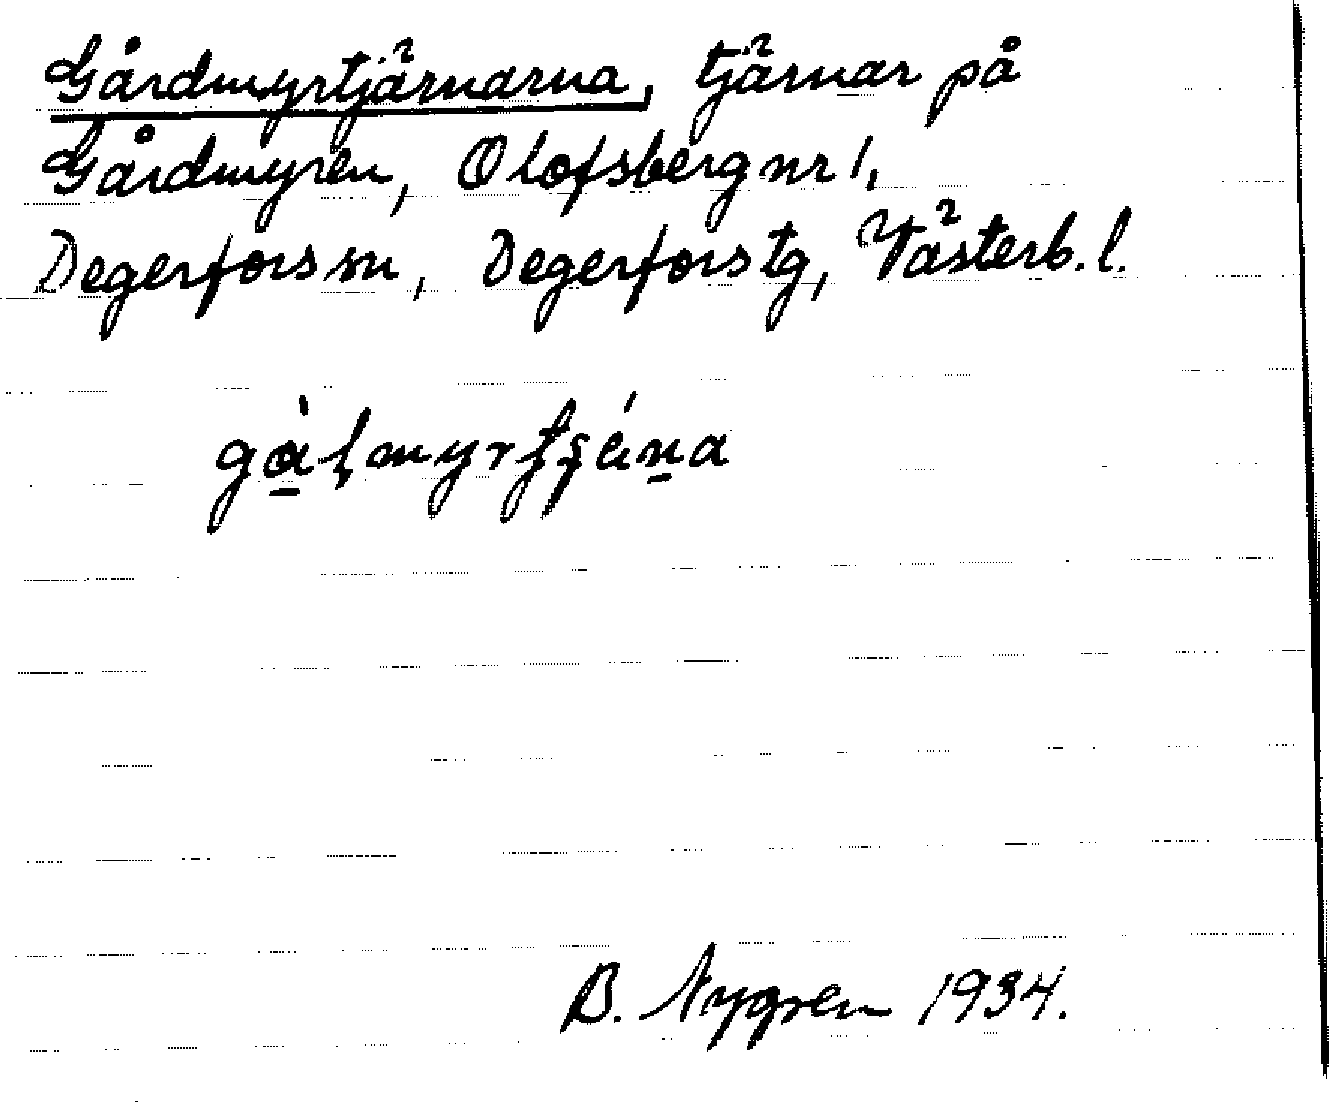 Gårdmyrtjärnarna, tjärnar på
Gårdmyren, Olofsberg nr 1,
Degerfors sn, Degerfors tg, Västerb. l.
B. Nygren 1934.